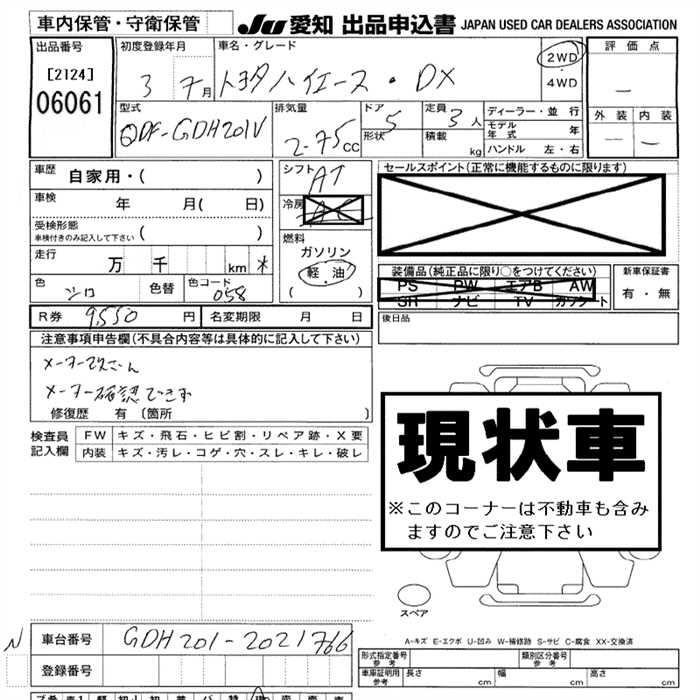 車内保管・守衛保管
JU 愛知 出品申込書 JAPAN USED CAR DEALERS ASSOCIATION
出品番号
[2124]
06061
初度登録年月
3 7月
車名・グレード
トヨタハイエース・DX
2WD
4WD
評価点
外装 内装
型式
QDF-GDH201V
排気量
2-75cc
ドア
5
形状
定員
3人
積載
kg
ディーラー・並行
モデル年式 年
ハンドル 左・右
車歴
自家用・( )
車検
年 月( 日)
受検形態
車検付きのみ記入して下さい ( )
走行
万 千 km *
色
シロ
色替
色コード
058
シフト
AT
冷房
AC
燃料
ガソリン
軽油
( )
セールスポイント(正常に機能するものに限ります)
装備品(純正品に限り○をつけてください)
PS PW エアB AW
SR ナビ TV カセット
新車保証書
有・無
後日品
R券 9550 円 名変期限 月 日
注意事項申告欄(不具合内容等は具体的に記入して下さい)
メーター改ざん
メーター確認できず
修復歴 有 〔箇所 〕
検査員
記入欄
FW キズ・飛石・ヒビ割・リペア跡・X要
内装 キズ・汚レ・コゲ・穴・スレ・キレ・破レ
現状車
※このコーナーは不動車も含み
ますのでご注意下さい
スペア
A-キズ E-エクボ U-凹み W-補修跡 S-サビ C-腐食 XX-交換済
N 車台番号 GDH201-2021766
登録番号
形式指定番号
参考
類別区分番号
参考
車庫証明用
参考
長さ cm 幅 cm 高さ cm